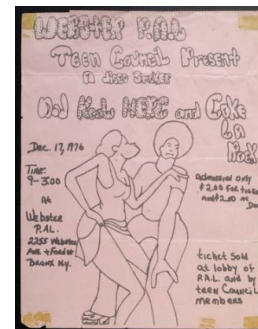 WEBSTER P.A.L
Teen Council Present
A disco Smoker
Kool HERC and Coke
La
Rock
Dec. 17, 1976
Time:
9-3:00
At
Webster
P.A.L.
2255 Webster
Ave + Ford st
Bronx Ny.
admission only
$2.00 for ticket
and $2.00 at
Door
ticket sold
at lobby of
P.A.L. and by
teen Council
members